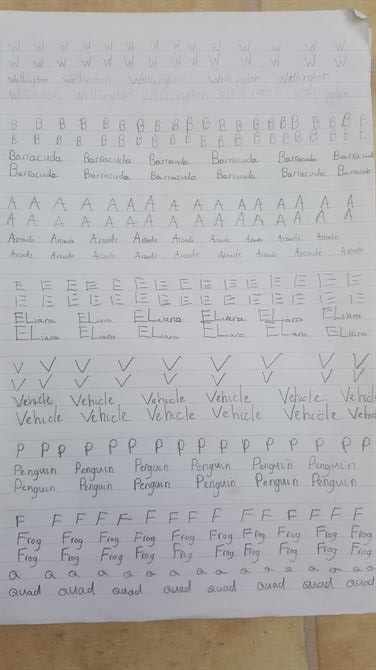 W W W W W W W W W W W W W W
W W W W W W W W W W W W W W
Wellington Wellington Wellington Wellington Wellington
Wellington Wellington Wellington Wellington Wellington
B B B B B B B B B B B B B B B B B B
B B B B B B B B B B B B B B B B B B
Barracuda Barracuda Barracuda Barracuda Barracuda Barracuda
Barracuda Barracuda Barracuda Barracuda Barracuda Barracuda
A A A A A A A A A A A A A A A
A A A A A A A A A A A A A A A
Arcade Arcade Arcade Arcade Arcade Arcade Arcade Arcade Arcade
Arcade Arcade Arcade Arcade Arcade Arcade Arcade Arcade Arcade
E E E E E E E E E E E E E E E
E E E E E E E E E E E E E E E
ELiana ELiana ELiana ELiana ELiana ELiana
ELiana ELiana ELiana ELiana ELiana ELiana
V V V V V V V V V
V V V V V V V V V
Vehicle Vehicle Vehicle Vehicle Vehicle Vehicle
Vehicle Vehicle Vehicle Vehicle Vehicle Vehicle
P P P P P P P P P P P P P P P P
Penguin Penguin Penguin Penguin Penguin Penguin
Penguin Penguin Penguin Penguin Penguin Penguin
F F F F F F F F F F F F F F
Frog Frog Frog Frog Frog Frog Frog Frog Frog
Frog Frog Frog Frog Frog Frog Frog Frog Frog
Q Q Q Q Q Q Q Q Q Q Q Q Q
Quad Quad Quad Quad Quad Quad Quad Quad